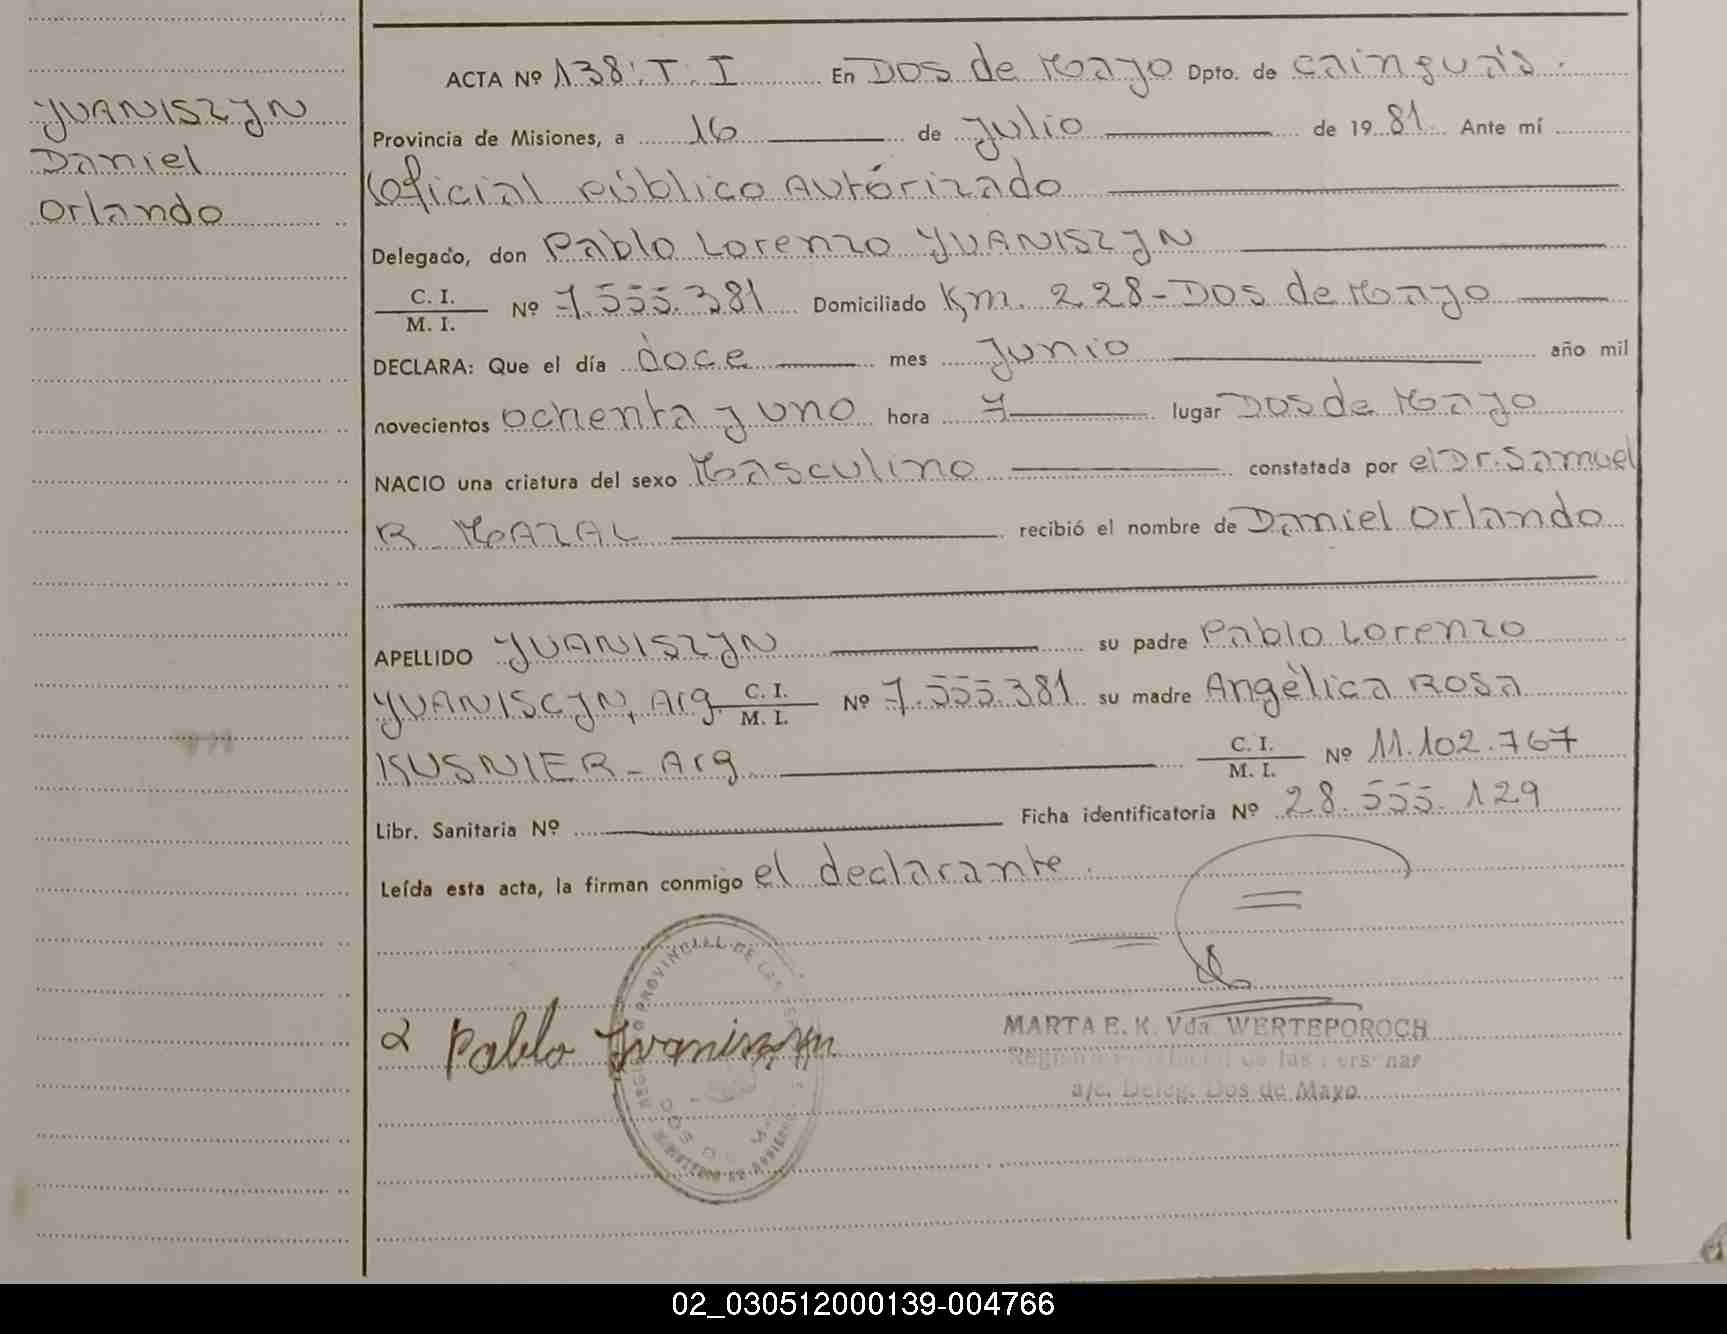 YUANISZYN
Daniel
Orlando
ACTA Nº 138. T. I En Dos de Mayo Dpto. de Cainguás.
Provincia de Misiones, a 16 de Julio de 1981. Ante mí
Oficial Público Autórizado
Delegado, don Pablo Lorenzo YUANISZYN
C. I.
M. I. Nº 7.555.381 Domiciliado Km. 228-Dos de Mayo
DECLARA: Que el día doce mes Junio año mil
novecientos ochenta y uno hora 7 lugar Dos de Mayo
NACIO una criatura del sexo Masculino constatada por el Dr. Samuel
R. MAZAL recibió el nombre de Daniel Orlando
APELLIDO YUANISZYN su padre Pablo Lorenzo
YUANISCYN, Arg. C. I.
M. I. Nº 7.555.381 su madre Angélica Rosa
KUSNIER - Arg C. I.
M. I. Nº 11.102.767
Libr. Sanitaria Nº Ficha identificatoria Nº 28.555.129
Leída esta acta, la firman conmigo el declarante.
REGISTRO PROVINCIAL DE LAS
DOS D M
Pablo Yvaniszyn
MARTA E. K. Vda. WERTEPOROCH
Registro Provincial de las Personas
a/c. Deleg. Dos de Mayo
02_030512000139-004766